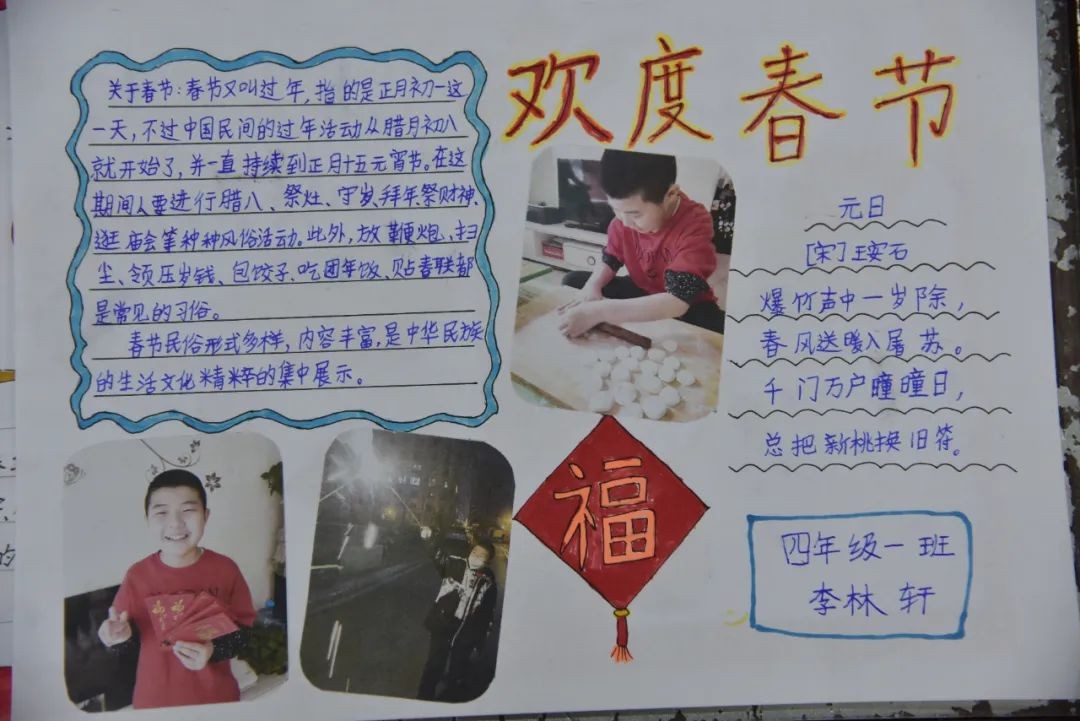 欢度春节
关于春节:春节又叫过年,指的是正月初一这
一天,不过中国民间的过年活动从腊月初八
就开始了,并一直持续到正月十五元宵节。在这
期间人要进行腊八、祭灶、守岁、拜年祭财神、
逛庙会等种种风俗活动。此外,放鞭炮、扫
尘、领压岁钱、包饺子、吃团年饭、贴春联都
是常见的习俗。
春节民俗形式多样,内容丰富,是中华民族
的生活文化精粹的集中展示。
元日
[宋]王安石
爆竹声中一岁除,
春风送暖入屠苏。
千门万户曈曈日,
总把新桃换旧符。
福
四年级一班
李林轩